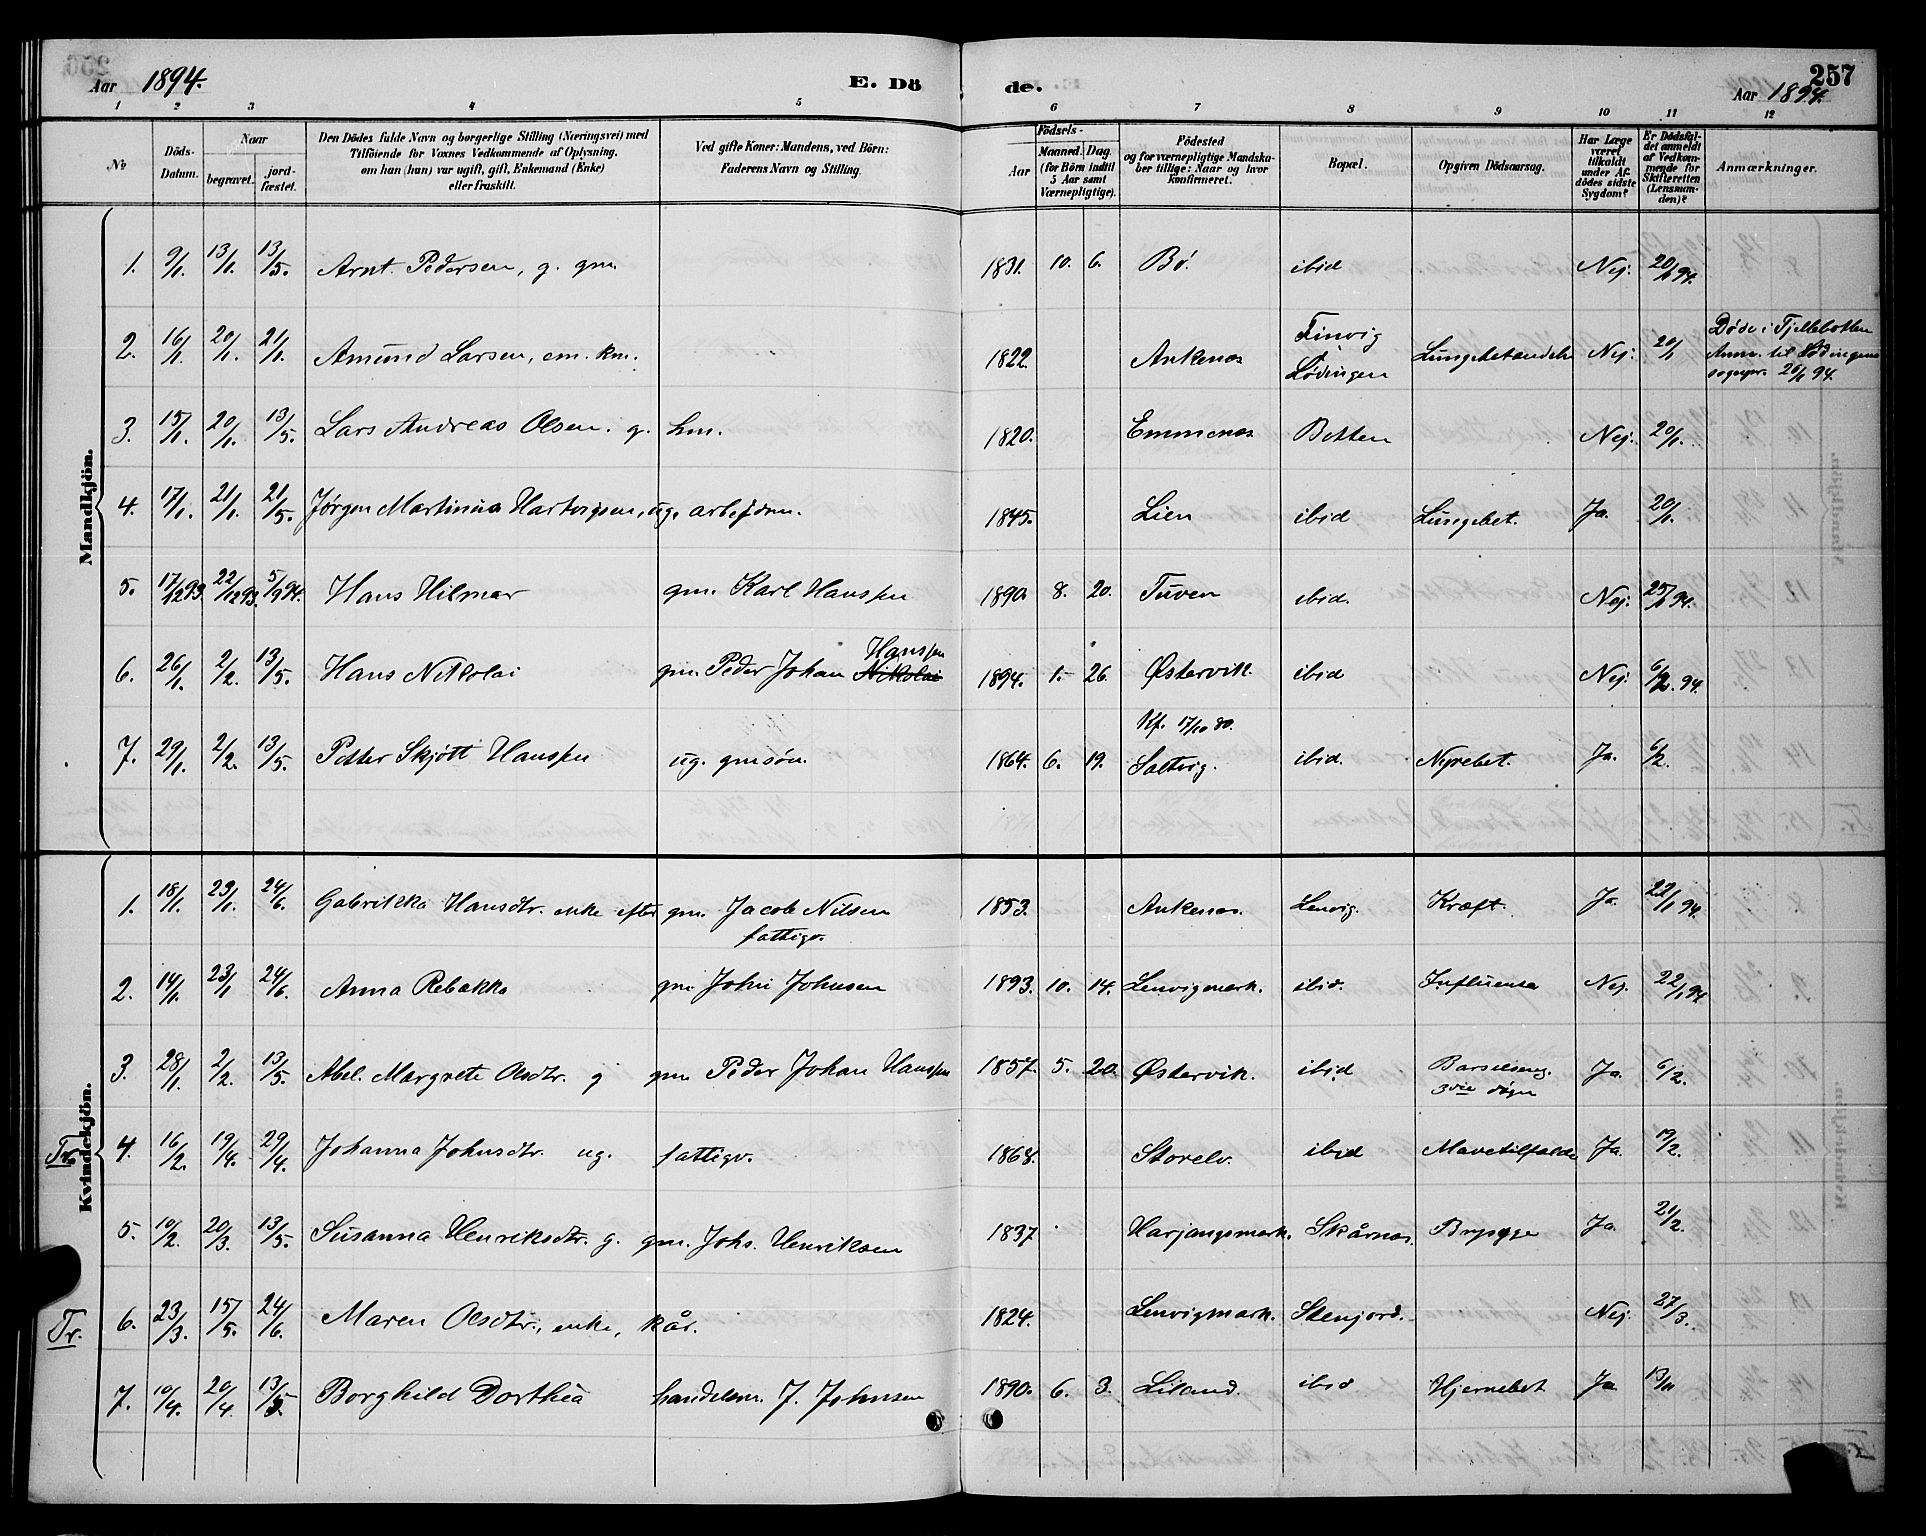 Aar 1894. E. Döde. 257
Aar 1894.
1 2 3 4 5 6 7 8 9 10 11 12
No
Döds-Datum.
Naar
begravet.
jord-fæstet.
Den Dödes fulde Navn og borgerlige Stilling (Næringsvei) med
Tilföiende for Voxnes Vedkommende af Oplysning,
om han (hun) var ugift, gift, Enkemand (Enke)
eller fraskilt.
Ved gifte Koner: Mandens, ved Börn:
Faderens Navn og Stilling.
Födsels-
Aar
Maaned. Dag.
(for Börn indtil
5 Aar samt
Værnepligtige).
Födested
og for værnepligtige Mandska-
ber tillige: Naar og hvor
konfirmeret.
Bopæl.
Opgiven Dödsaarsag.
Har Læge
været
tilkaldt
under Af-
dödes sidste
Sygdom?
Er Dödsfal-
det anmeldt
af Vedkom-
mende for
Skifteretten
(Lensman-
den)?
Anmærkninger.
Mandkjön.
1. 9/1. 13/1. 13/5. Arnt. Pedersen, g. gm. 1831. 10. 6. Bö. ibid Nej. 20/1 94.
2. 16/1. 20/1. 21/1. Amund Larsen, em. km. 1822. Ankenes Finvig i Lødingen Lungebetændelse Nej. 20/1 Døde i Fjellebotten
Anm. til Lødingens
sognepr. 20/1 94.
3. 15/1. 20/1. 13/5. Lars Andreas Olsen. g. hm. 1820. Emmenes Botten Nej. 20/1.
4. 17/1. 21/1. 21/5. Jørgen Martinus Hartvigsen, ug. arbejdsm. 1845. Lien ibid Lungebet. Ja. 20/1.
5. 17/12 93. 22/12 93. 5/9 94. Hans Hilmar gm. Karl Hanssen 1890. 8. 20. Tuven ibid. Nej. 25/1 94.
6. 26/1. 2/2. 13/5. Hans Nikolai gm. Peder Johan Nikolai Hanssen 1894. 1. 26. Østervik. ibid Nej. 6/2. 94.
Kf. 17/10 80.
7. 29/1. 2/2. 13/5. Petter Skjött Hanssen ug. gmsøn. 1864. 6. 19. Saltvig. ibid. Nyrebet. Ja. 6/2.
Kvindekjön.
1. 18/1. 23/1. 24/6. Gabrikka Hansdtr. enke efter gm. Jacob Nilsen
fattigv. 1853. Ankenes. Lenvig. Kræft. Ja. 22/1 94.
2. 14/1. 23/1 24/6. Anna Rebakka gm John Johnsen 1893. 10. 14. Lenvigmark. ibid. Influensa Nej. 22/1 94
3. 28/1. 2/2. 13/5. Abel. Margrete Olsdtr. g gm Peder Johan Hanssen 1857. 5. 20. Østervik. ibid Barselseng.
3die døgn Ja. 6/2.
Tr. 4. 16/2. 19/4. 29/4. Johanna Johnsdtr. ug. fattigv. 1868. Storelv. ibid Mavetilfælde Ja. 19/2.
5. 10/2. 20/3. 13/5. Susanna Henriksdtr. g. gm. Johs. Henriksen 1837 Harjangsmark. Skårnes. Brystsyge Ja. 21/2.
Tr. 6. 23/3. 15/5. 24/6. Maren Olsdtr., enke, kår. 1824. Lenvigmark. Stenjord. Nej. 27/3.
7. 10/4. 20/4. 13/5. Borghild Dorthea handelsm. J. Johnsen 1890. 6. 3. Liland. ibid Hjernebet Ja.